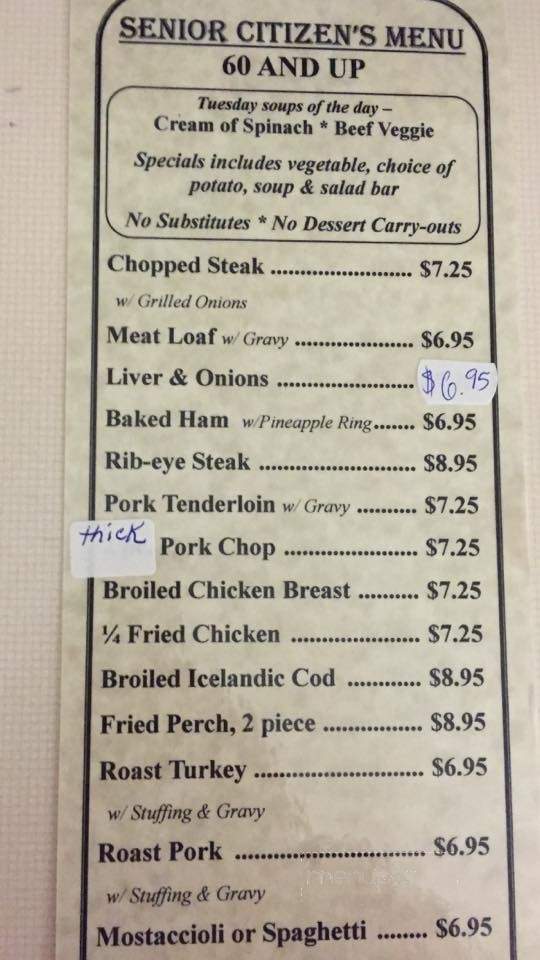 SENIOR CITIZEN'S MENU
60 AND UP
Tuesday soups of the day –
Cream of Spinach * Beef Veggie
Specials includes vegetable, choice of
potato, soup & salad bar
No Substitutes * No Dessert Carry-outs
Chopped Steak .......................... $7.25
w/ Grilled Onions
Meat Loaf w/ Gravy ...................... $6.95
Liver & Onions ......................... $6.95
Baked Ham w/Pineapple Ring....... $6.95
Rib-eye Steak ............................. $8.95
Pork Tenderloin w/ Gravy ........... $7.25
thick Pork Chop ......................... $7.25
Broiled Chicken Breast ........... $7.25
¼ Fried Chicken ........................ $7.25
Broiled Icelandic Cod ............. $8.95
Fried Perch, 2 piece .................. $8.95
Roast Turkey ............................... $6.95
w/ Stuffing & Gravy
Roast Pork ................................... $6.95
w/ Stuffing & Gravy
Mostaccioli or Spaghetti ......... $6.95